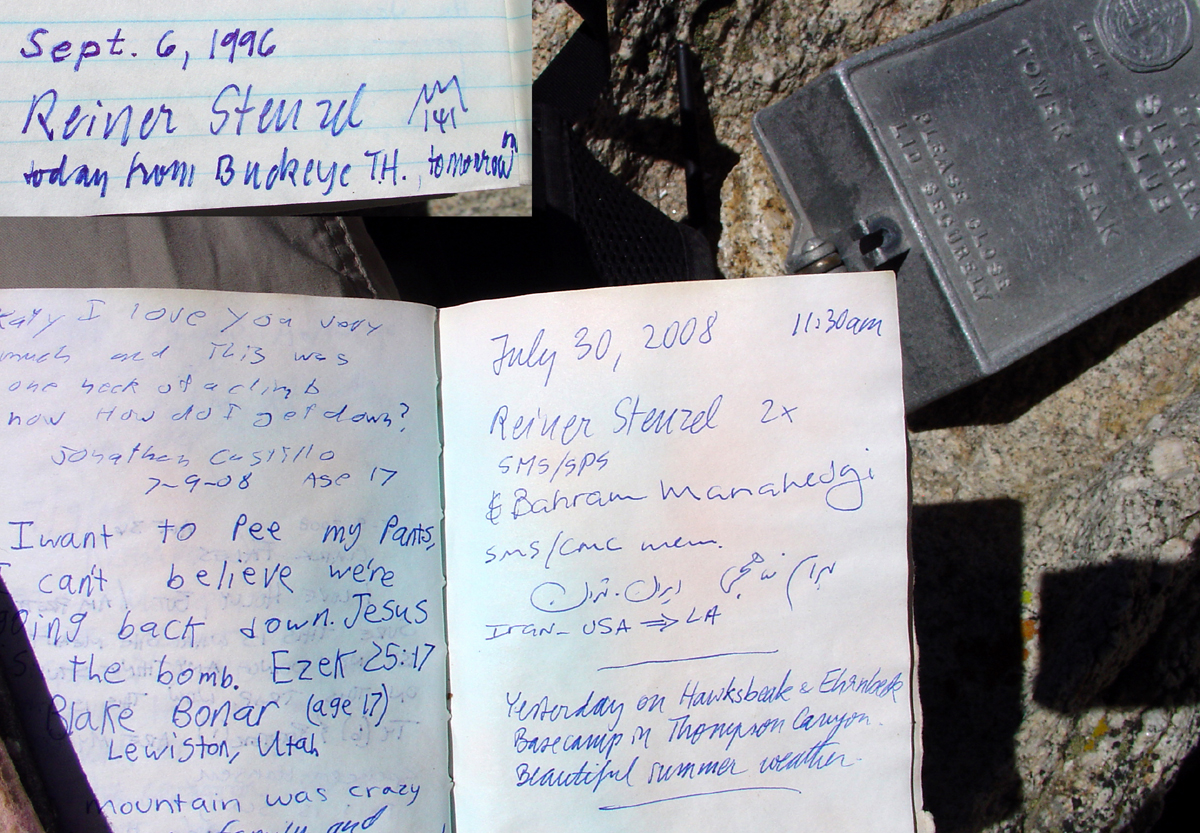 Sept. 6, 1996
Reiner Stenzel
141
today from Buckeye T.H., tomorrow
Katy I love you very
much and This was
one heck of a climb
now How do I get down?
Jonathan Castillo
7-9-08 Age 17
I want to Pee my Pants,
I can't believe we're
going back down. Jesus
is the bomb. Ezek 25:17
Blake Bonar (age 17)
Lewiston, Utah
mountain was crazy
family and
July 30, 2008 11:30am
Reiner Stenzel 2x
SMS/SPS
& Bahram Manahedgi
SMS/CMC mem.
ایران
Iran - USA ⇒ LA
Yesterday on Hawksbeak &
Basecamp in Thompson Canyon.
Beautiful summer weather.
SIERRA
CLUB
TOWER PEAK
PLEASE CLOSE
LID SECURELY